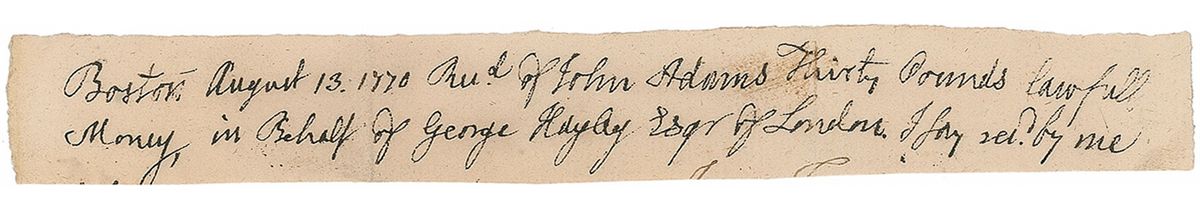 Boston August 13. 1770 Recd of John Adams Thirty Pounds lawfull
Money, in Behalf of George Hayley Esqr of London. I say recd. by me